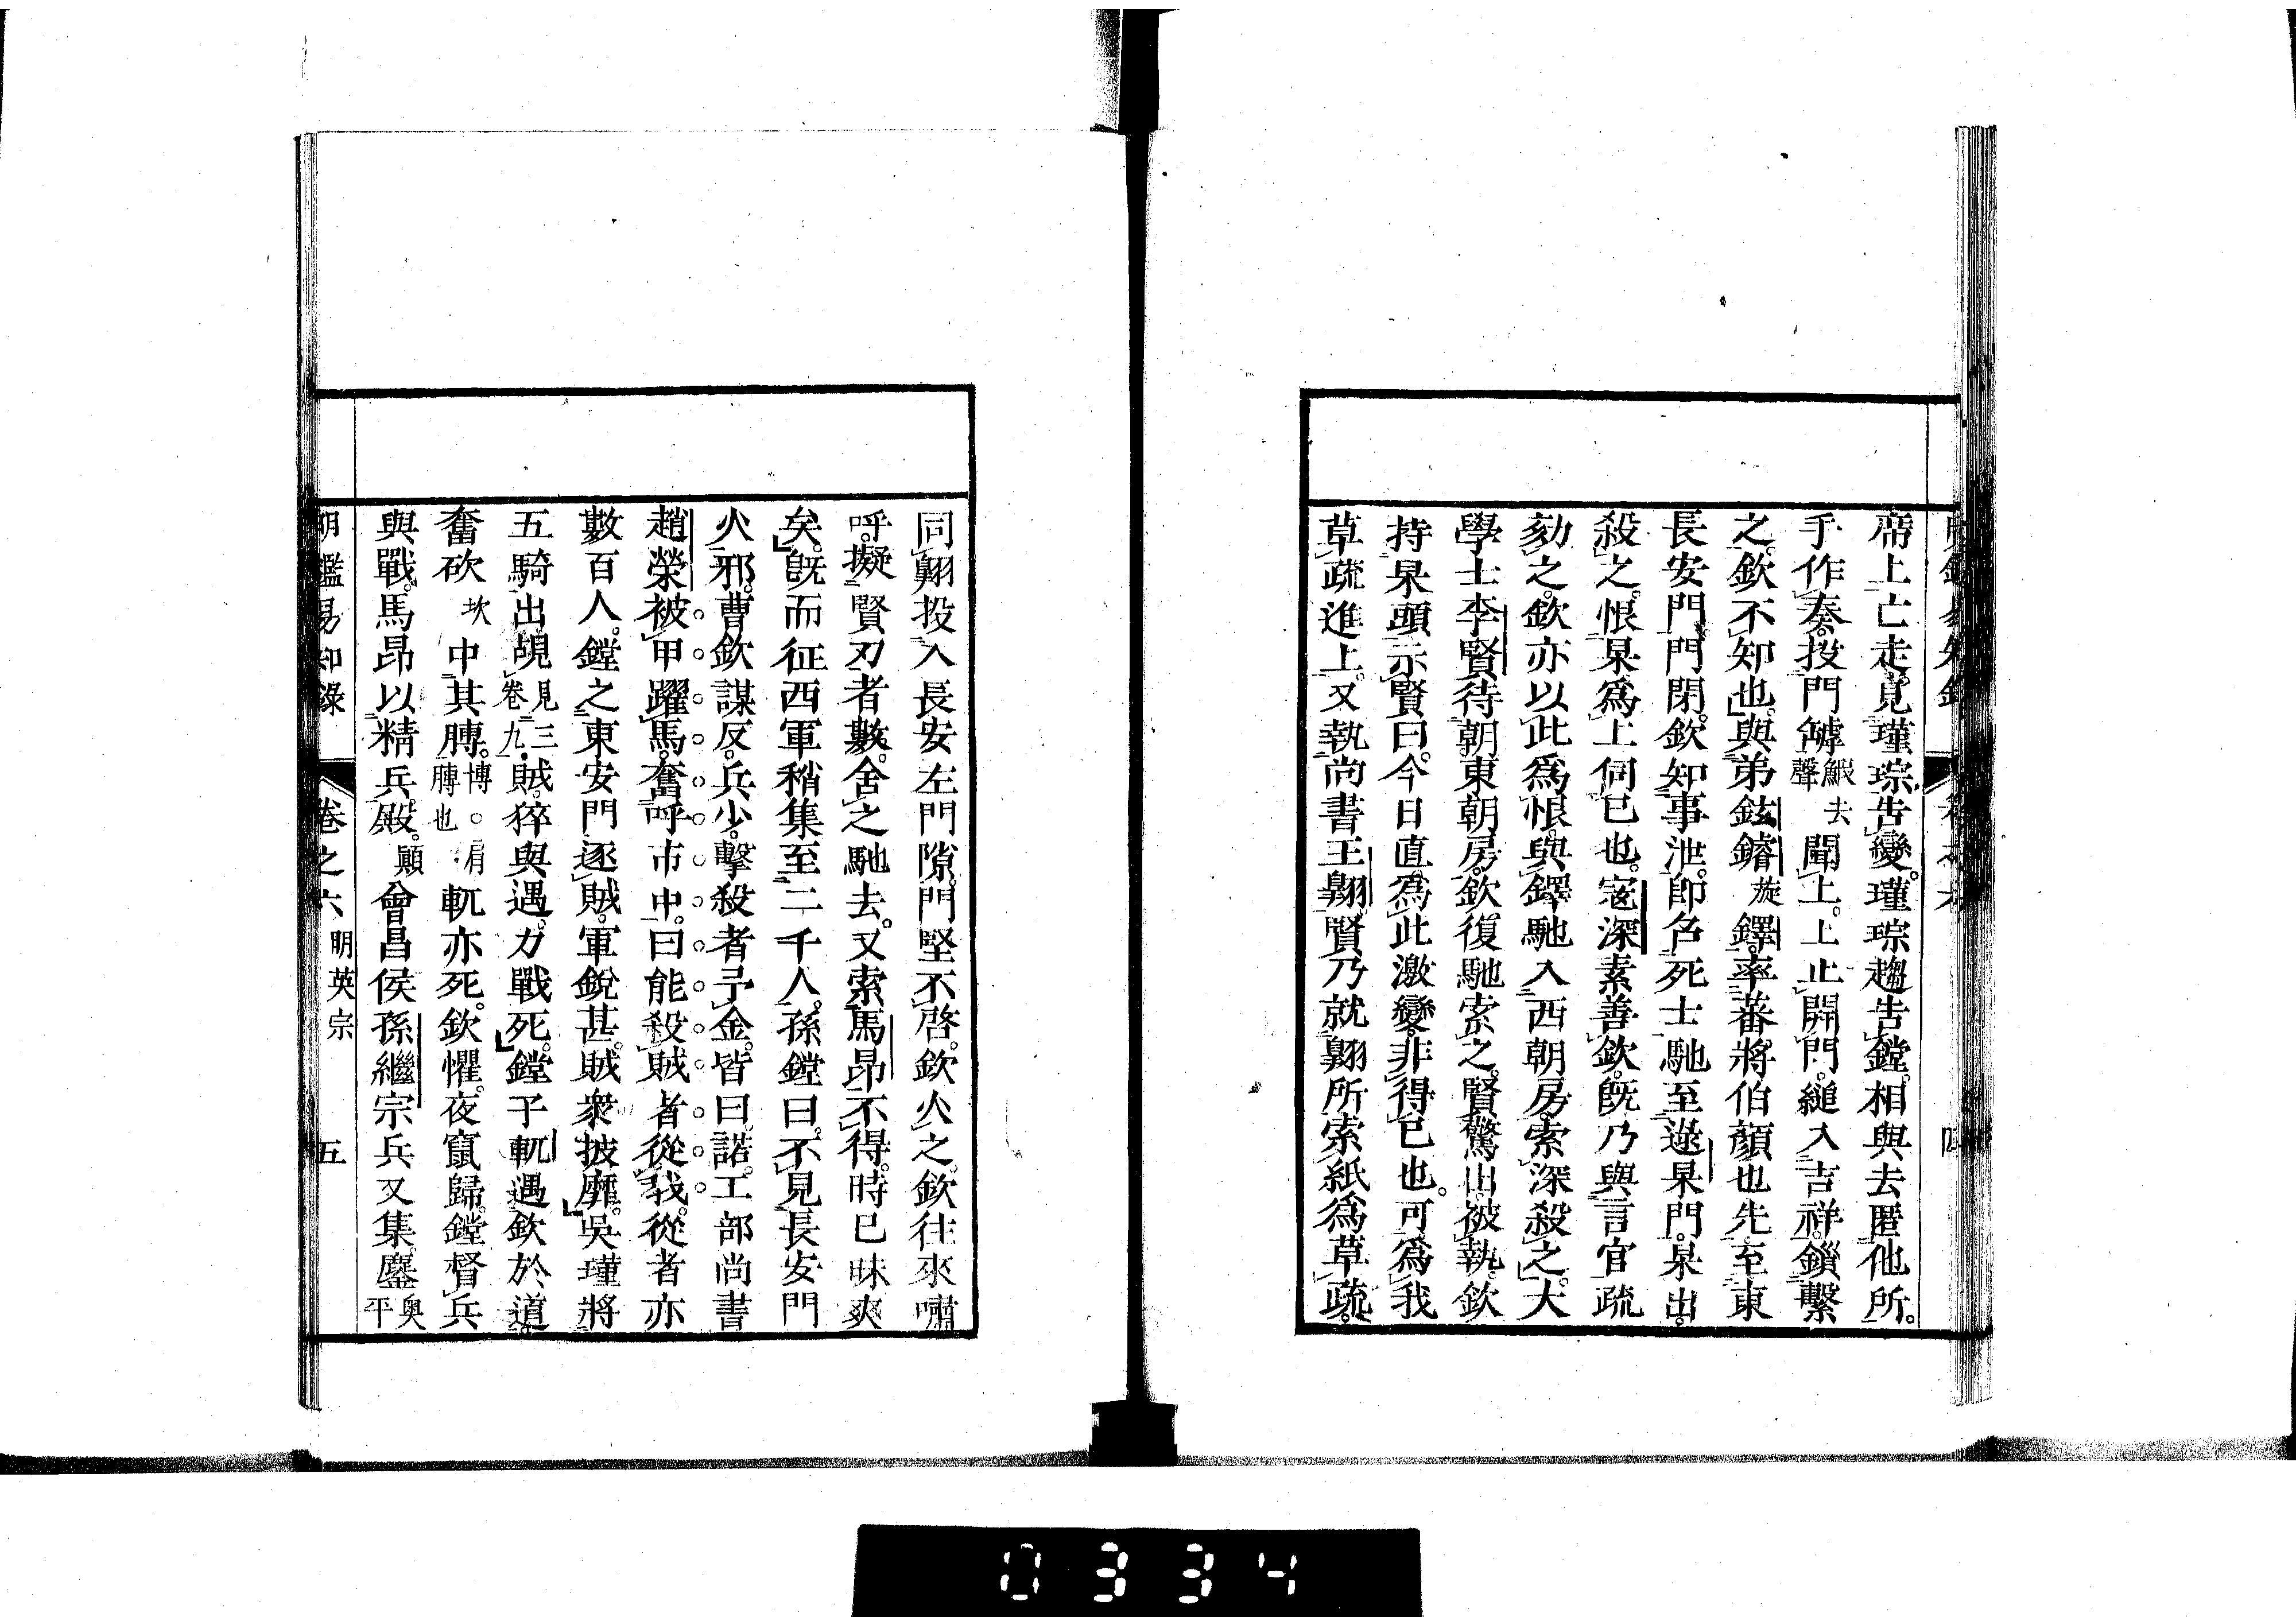 席上亡走。見瑾琮告變。瑾琮趨告鏜。相與去匿他所。
手作奏。投門罅鰕去聲聞上。上止開門。縋入吉祥。鎖繫
之。欽不知也。與弟鉉鐏旋鐸。率蕃將伯顏也先。至東
長安門。門閉。欽知事泄。即色死士馳至逯杲門。杲出。
殺之。恨杲爲上伺已也。寇深素善欽。既乃與言官疏
劾之。欽亦以此爲恨。與鐸馳入西朝房。索深殺之。大
學士李賢待朝東朝房。欽復馳索之。賢驚出。被執。欽
持杲頭示賢曰。今日直爲此激變。非得已也。可爲我
草疏進上。又執尚書王翺。賢乃就翺所索紙爲草疏。
同翺投入長安左門隙。門堅不啓。欽火之。欽往來嘯
呼。擬賢刃者數。舍之馳去。又索馬昂不得。時已昧爽
矣。既而征西軍稍集至二千人。孫鏜曰。不見長安門
火邪。曹欽謀反。兵少。擊殺者予金。皆曰諾。工部尚書
趙榮被甲躍馬。奮呼市中。曰能殺賊者從我。從者亦
數百人。鏜之東安門逐賊。軍銳甚。賊衆披靡。吳瑾將
五騎出覘見三卷九。賊。猝與遇。力戰死。鏜子軏遇欽於道。
奮砍坎中其膊。博。肩膊也。軏亦死。欽懼。夜竄歸。鏜督兵
與戰。馬昂以精兵。殿。顚會昌侯孫繼宗兵又集。鏖奥平
明鑑易知錄 卷之六 明英宗 五
0334